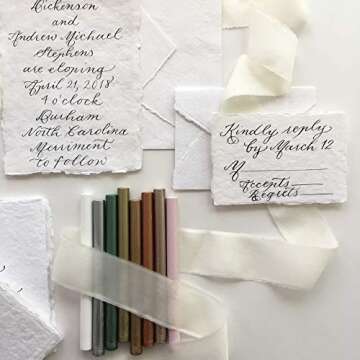 Dickenson
and
Andrew Michael
Stephens
are eloping
April 21, 2018
4 o'clock
Durham
North Carolina
Merriment
to follow
Kindly reply
by March 12
M
Accepts
Regrets